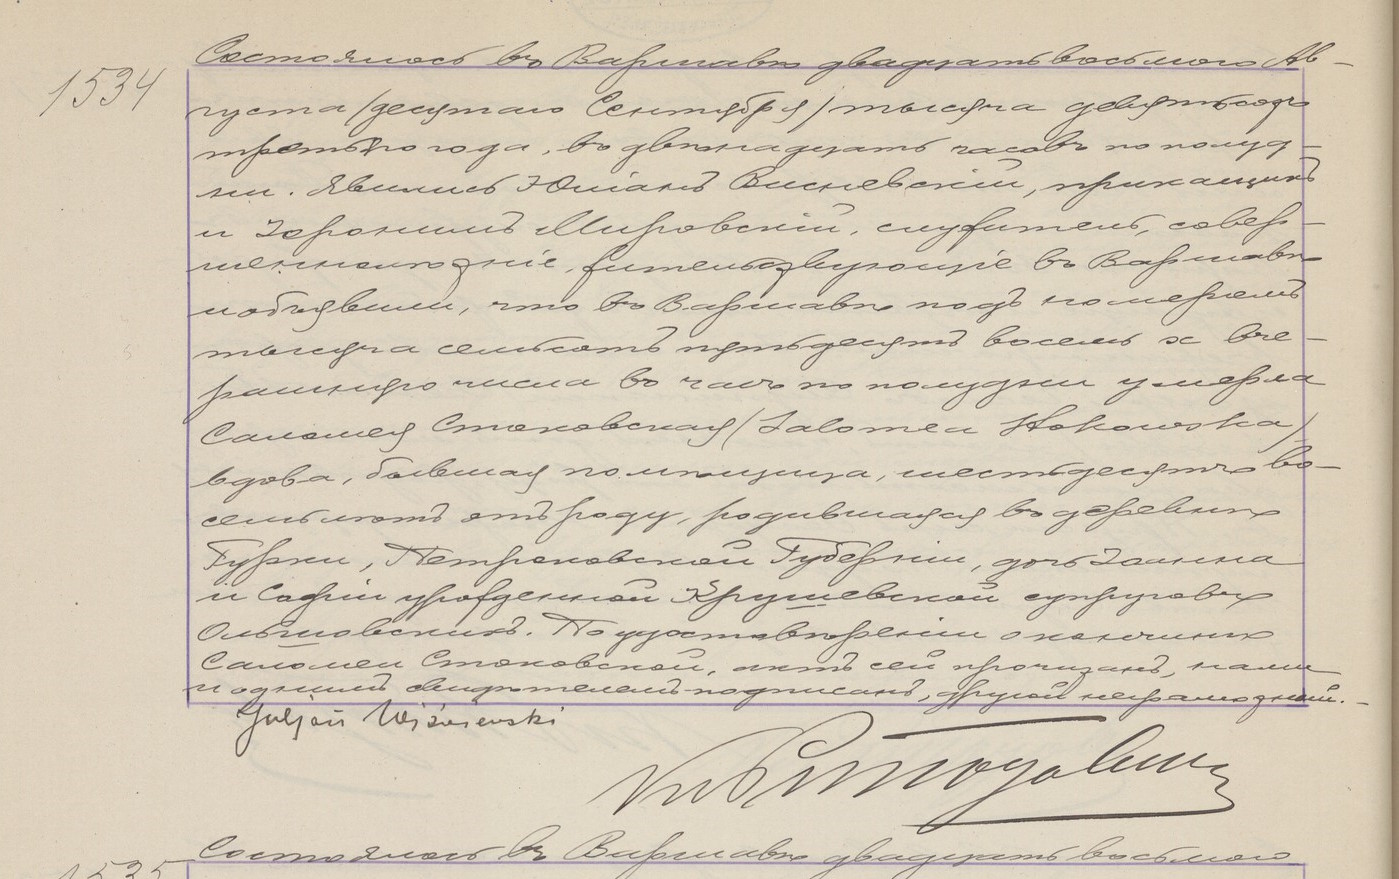 1534
Состоялось въ Варшавѣ двадцать восьмого Ав-
густа /десятаго Сентября/ тысяча девятьсотъ
третьяго года, въ двѣнадцать часовъ по полуд-
ни. Явились Юліанъ Висневскій, прикащикъ
и Іеронимъ Мировскій, служитель, совер-
шеннолѣтніе, жительствующіе въ Варшавѣ
и объявили, что въ Варшавѣ подъ номеромъ
тысяча семьсотъ пятьдесятъ восемь х вче-
рашняго числа въ часъ по полудни умерла
Саломея Стоковская /Salomea Stokowska/
вдова, бывшая помѣщица, шестьдесятъ во-
семь лѣтъ отъ роду, родившаяся въ деревнѣ
Гурки, Петроковской Губерніи, дочь Іоанна
и Софіи урожденной Крушевской супруговъ
Ольшовскихъ. По удостовѣреніи о кончинѣ
Саломеи Стоковской, актъ сей прочитанъ, нами
и однимъ свидѣтелемъ подписанъ, другой неграмотный.
Juljan Wiśniewski
1535
Состоялось въ Варшавѣ двадцать восьмого